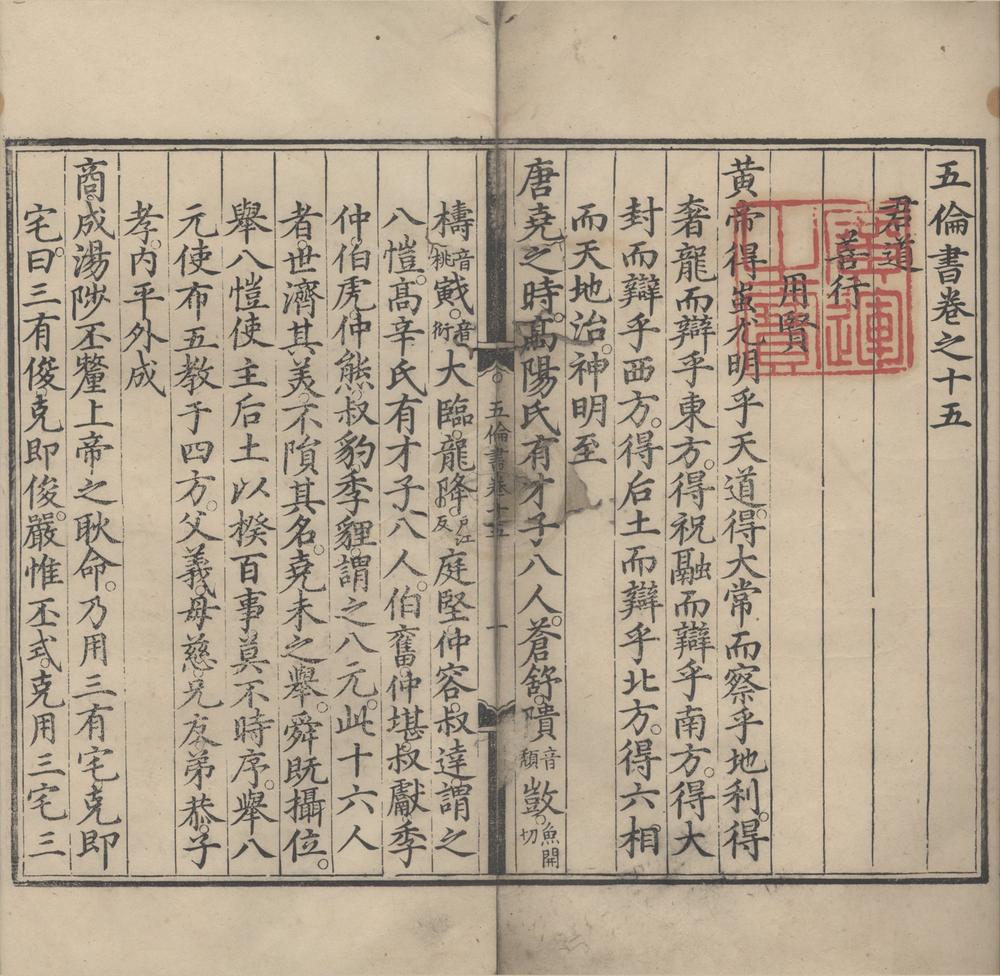 五倫書卷之十五
君道
善行
用賢
黃帝得蚩尤明乎天道。得大常而察乎地利。得
奢龍而辯乎東方。得祝融而辯乎南方。得大
封而辯乎西方。得后土而辯乎北方。得六相
而天地治。神明至
唐堯之時。高陽氏有才子八人。蒼舒。隤音頹敳魚開切。
五倫書卷十五 一
檮音桃戭音衍。大臨。龍降下江反。庭堅。仲容。叔達。謂之
八愷。高辛氏有才子八人。伯奮。仲堪。叔獻。季
仲。伯虎。仲熊。叔豹。季貍。謂之八元。此十六人
者。世濟其美。不隕其名。堯未之舉。舜既攝位。
舉八愷使主后土。以揆百事。莫不時序。舉八
元使布五教于四方。父義。母慈。兄友。弟恭。子
孝。內平外成
商成湯陟丕釐上帝之耿命。乃用三有宅克即
宅。曰三有俊克即俊。嚴惟丕式。克用三宅三